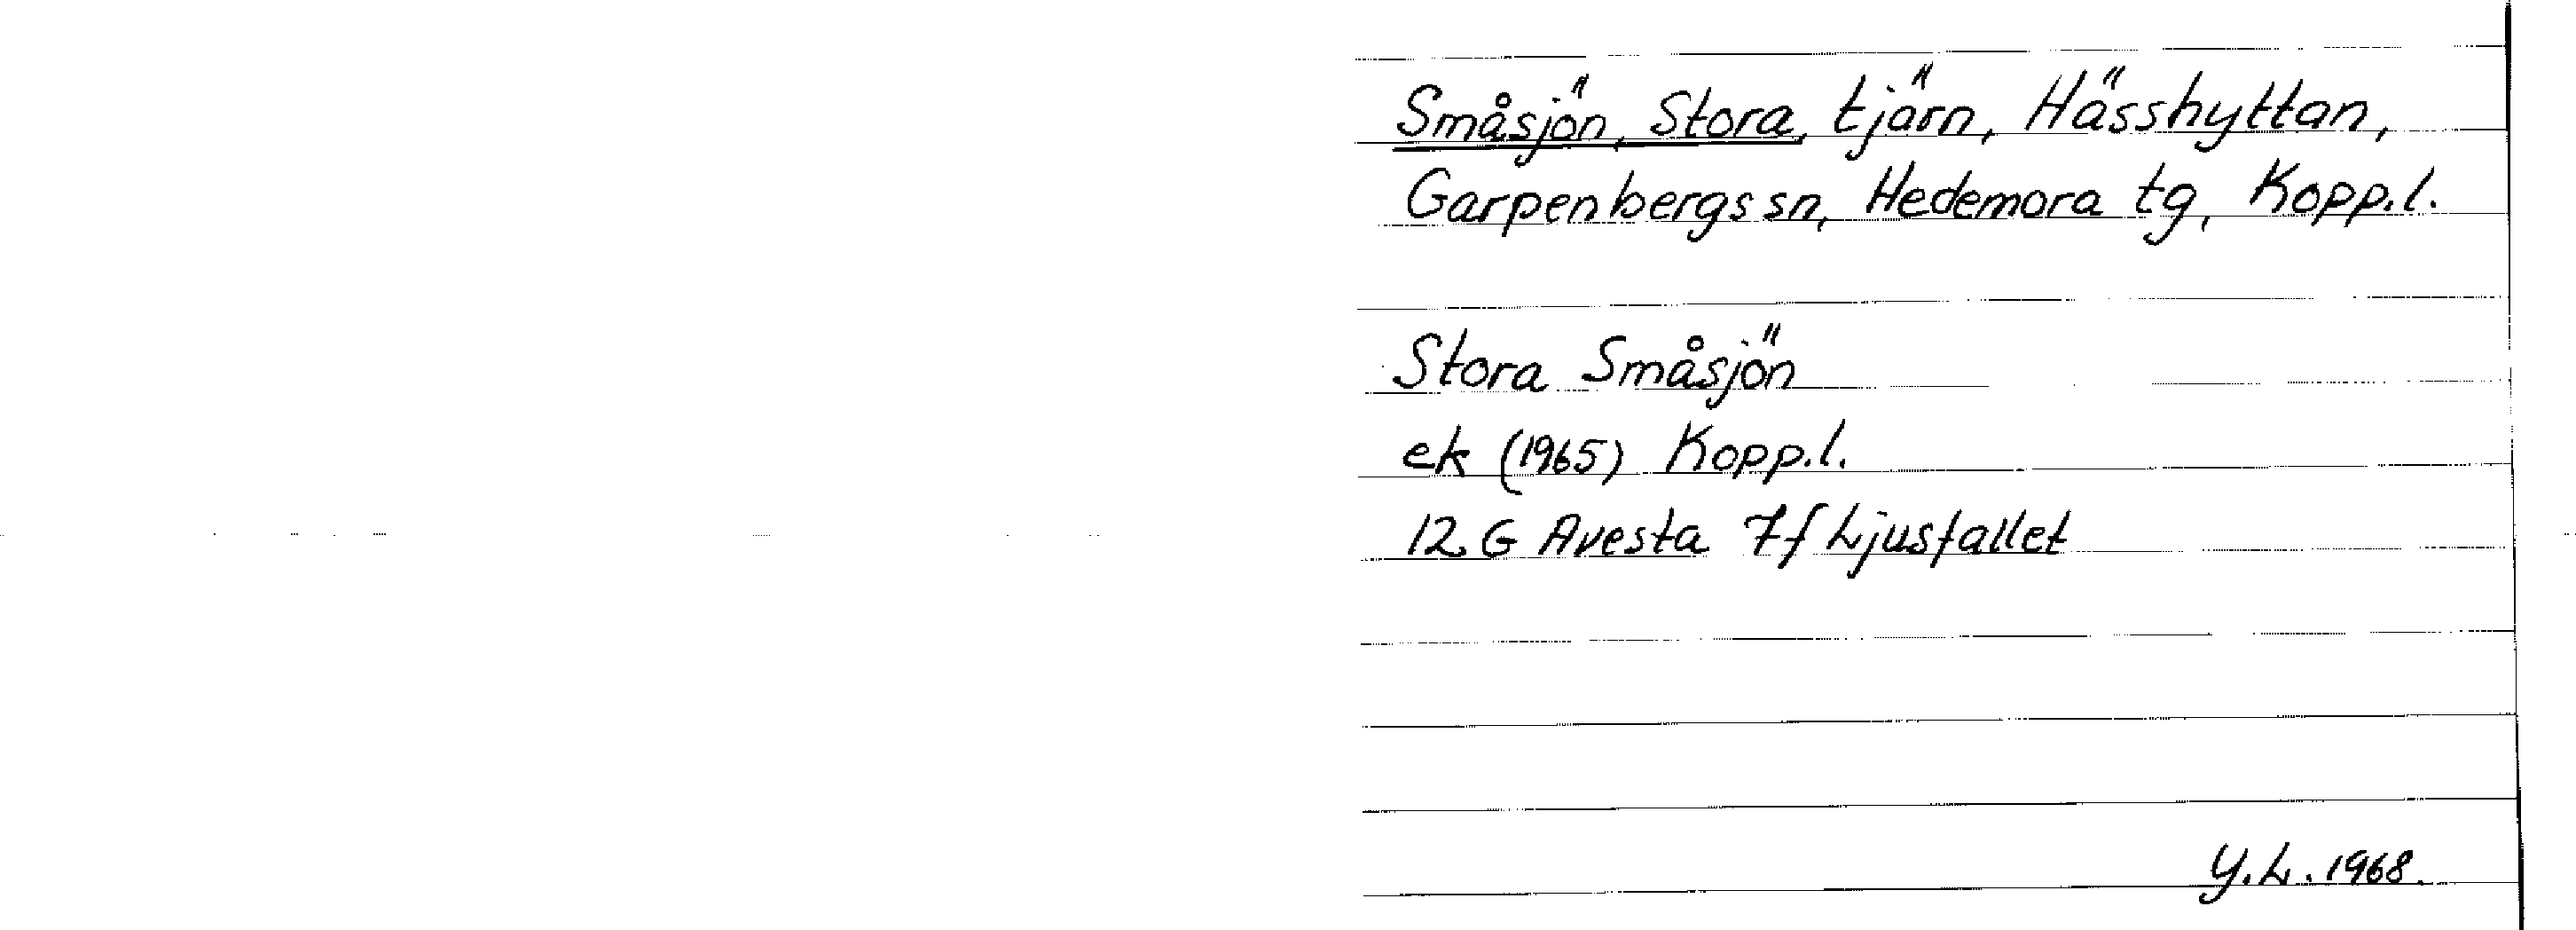 Småsjön, Stora, tjärn, Hässhyttan,
Garpenbergs sn, Hedemora tg, Kopp.l.
Stora Småsjön
ek (1965) Kopp.l.
12 G Avesta 7f Ljusfallet
Y.L. 1968.